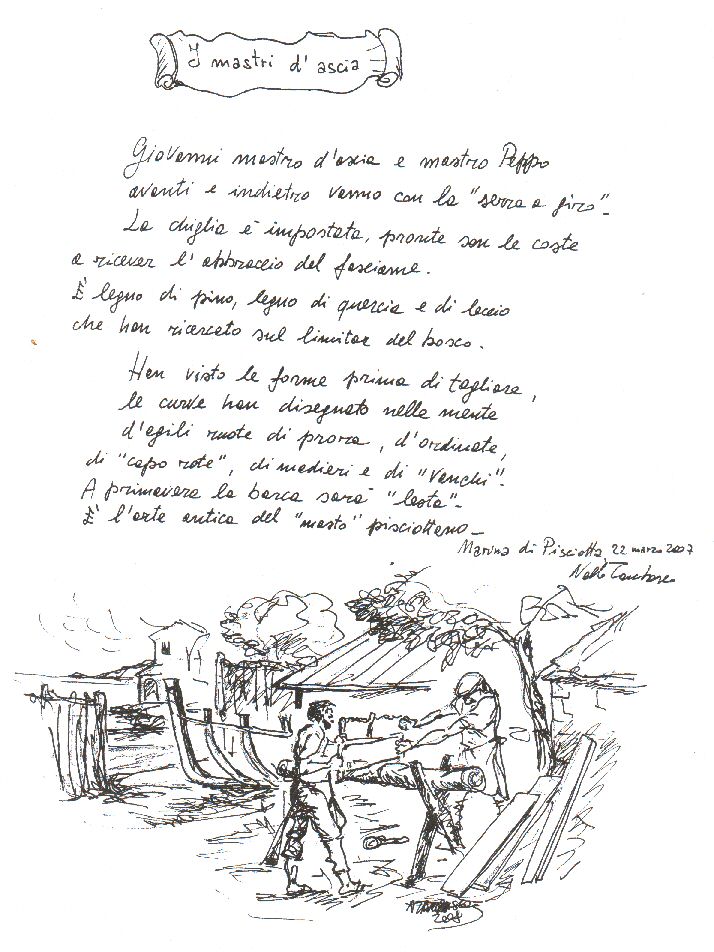 I mastri d'ascia
Giovanni mastro d'ascia e mastro Peppo
avanti e indietro vanno con la "serra a giro".
La chiglia è impostata, pronte son le coste
a ricever l'abbraccio del fasciame.
È legno di pino, legno di quercia e di leccio
che han ricercato sul limitar del bosco.
Han visto le forme prima di tagliare,
le curve han disegnato nelle mente
d'agili ruote di prorra, d'ordinate,
di "capo rote", di madieri e di "vanchi".
A primavera la barca sarà "lesta".
È l'arte antica del "masto" pisciottano.
Marina di Pisciotta, 22 marzo 2007
2008